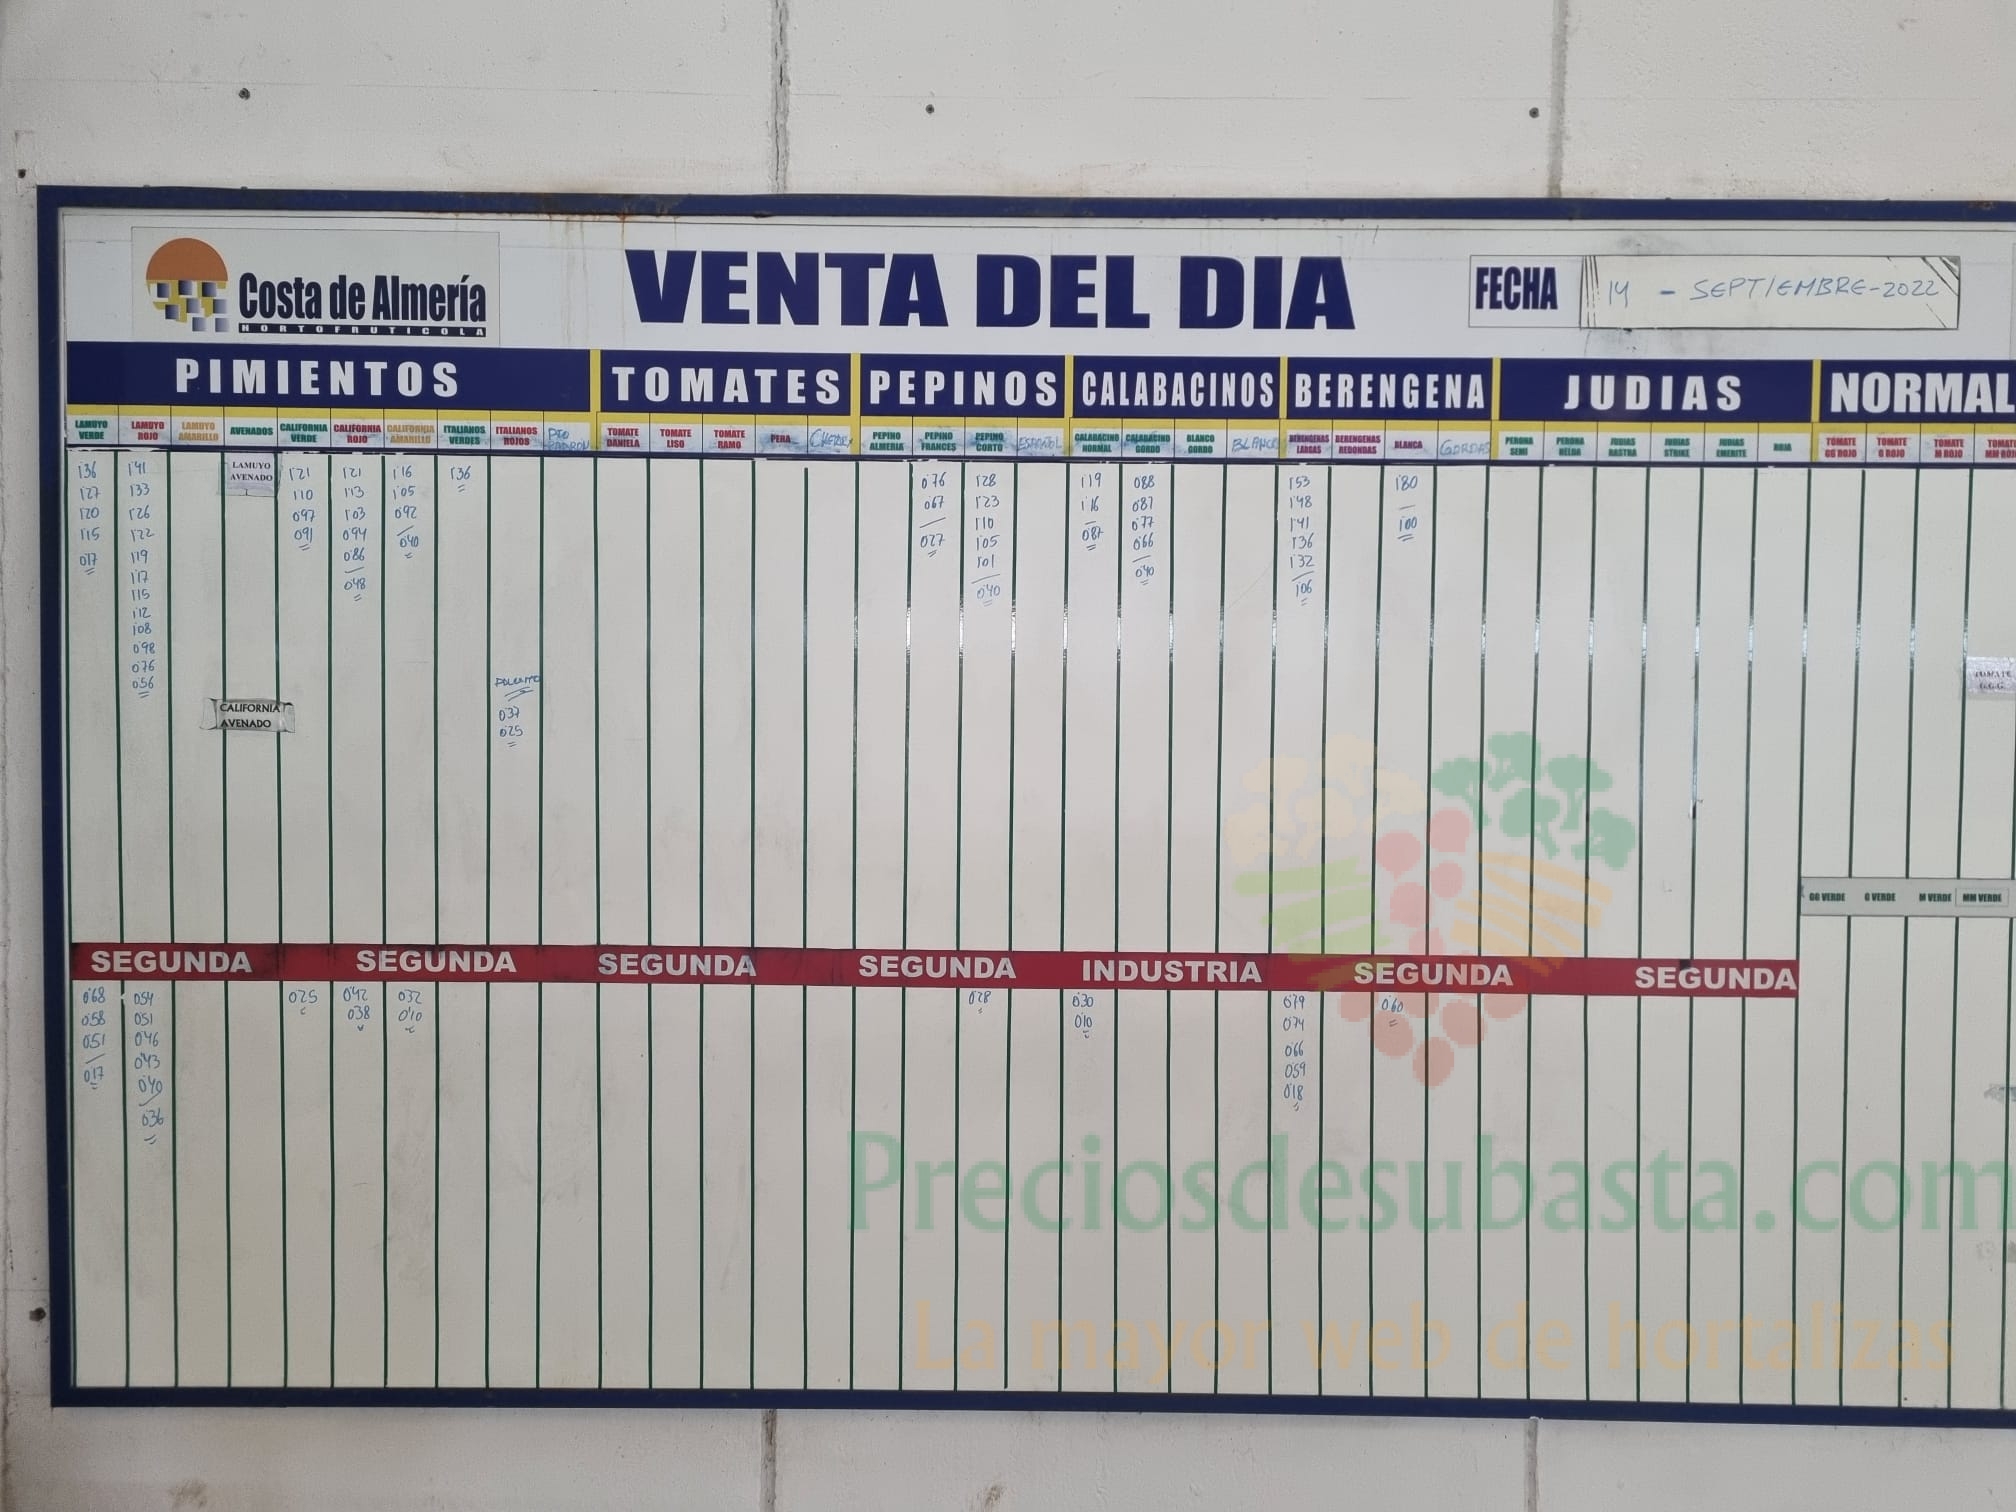 Costa de Almería
HORTOFRUTICOLA
VENTA DEL DIA
FECHA 14 - SEPTIEMBRE-2022
PIMIENTOS TOMATES PEPINOS CALABACINOS BERENGENA JUDIAS NORMAL
LAMUYO VERDE LAMUYO ROJO LAMUYO AMARILLO AVENADOS CALIFORNIA VERDE CALIFORNIA ROJO CALIFORNIA AMARILLO ITALIANOS VERDES ITALIANOS ROJOS PTO PADRON TOMATE DANIELA TOMATE LISO TOMATE RAMO PERA CHERRY PEPINO ALMERIA PEPINO FRANCES PEPINO CORTO ESPAÑOL CALABACINO NORMAL CALABACINO GORDO BLANCO GORDO BLANCO BERENGENAS LARGAS BERENGENAS REDONDAS BLANCA GORDAS PERONA SEMI PERONA HELDA JUDIAS RASTRA JUDIAS STRIKE JUDIAS EMERITE ROJA TOMATE GG ROJO TOMATE G ROJO TOMATE M ROJO TOMATE MM ROJO
1'36 1'41 LAMUYO AVENADO 1'21 1'21 1'16 1'36 0'76 1'28 1'19 0'88 1'53 1'80
1'27 1'33 1'10 1'13 1'05 0'67 1'23 1'16 0'81 1'48
1'20 1'26 0'97 1'03 0'92 1'10 0'77 1'41 1'00
1'15 1'22 0'91 0'94 0'40 0'27 1'05 0'87 0'66 1'36
0'17 1'19 0'86 1'01 0'40 1'32
1'17 0'48 0'40 1'06
1'15
1'12
1'08
0'98
0'76
0'56
0'37
0'25
CALIFORNIA AVENADO
TOMATE G.G.G.
GG VERDE G VERDE M VERDE MM VERDE
SEGUNDA SEGUNDA SEGUNDA SEGUNDA INDUSTRIA SEGUNDA SEGUNDA
0'68 0'54 0'25 0'42 0'32 0'28 0'30 0'79 0'60
0'58 0'51 0'38 0'10 0'10 0'74
0'51 0'46 0'66
0'17 0'43 0'59
0'40 0'18
0'36
Preciosdesubasta.com
La mayor web de hortalizas